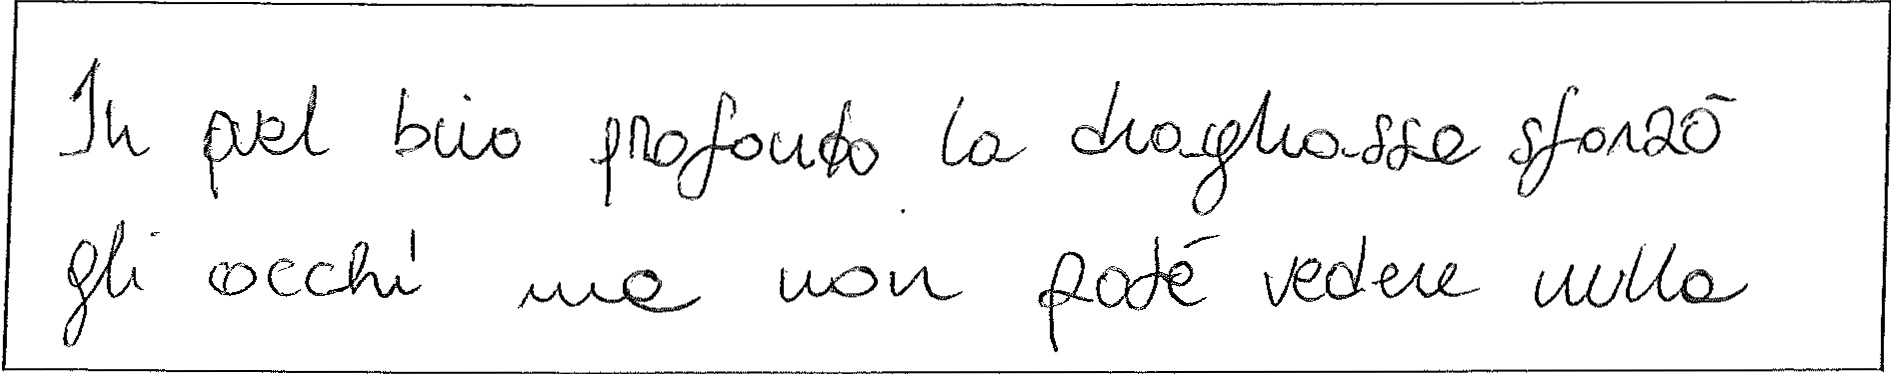 In quel buio profondo la draghassa sforzò
gli occhi ma non poté vedere nulla